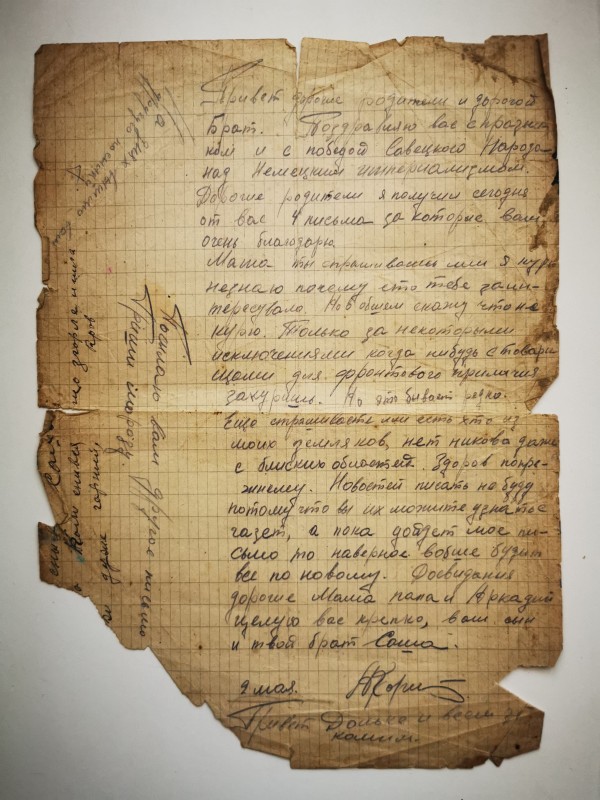 Привет дорогие родители и дорогой
Брат. Поздравляю вас с праздни
ком и с победой Савецкого Народа
над Немецким империализмом.
Дорогие родители я получил сегодня
от вас 4 письма за которые вам
очень благодарю.
Маша ты спрашиваешь или я курю
незнаю почему это тебе заин-
тересувало. Но в общем скажу что не
курю. Только за некоторыми
исключениями когда нибудь с товари
щами для фронтового приличия
закуриш. Но это бывает редко.
Еще спрашиваете или есть кто из
моих земляков, нет никова даже
с блиских областей. Здоров попре-
жнему. Новостей писать не буду
потому что вы их можите узнать с
газет, а пока дойдет мое пи-
сьмо то наверное вобще будит
все по новому. Досвидания
дорогие Мама папа и Аркадий
целую вас крепко, ваш сын
и твой брат Саша.
9 мая.
Привет и всем зна
комим.
Посилаю вам другое письмо